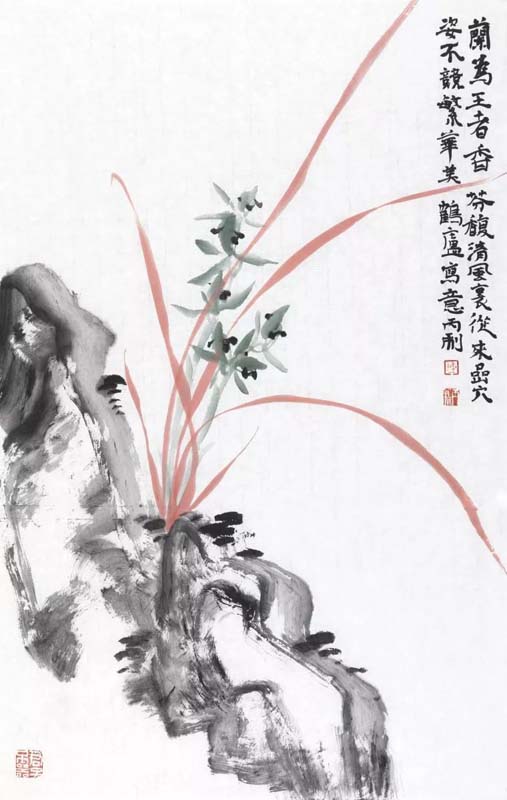 蘭為王者香芬馥清風裏從來嵒穴
姿不競繁華美鶴廬寫意